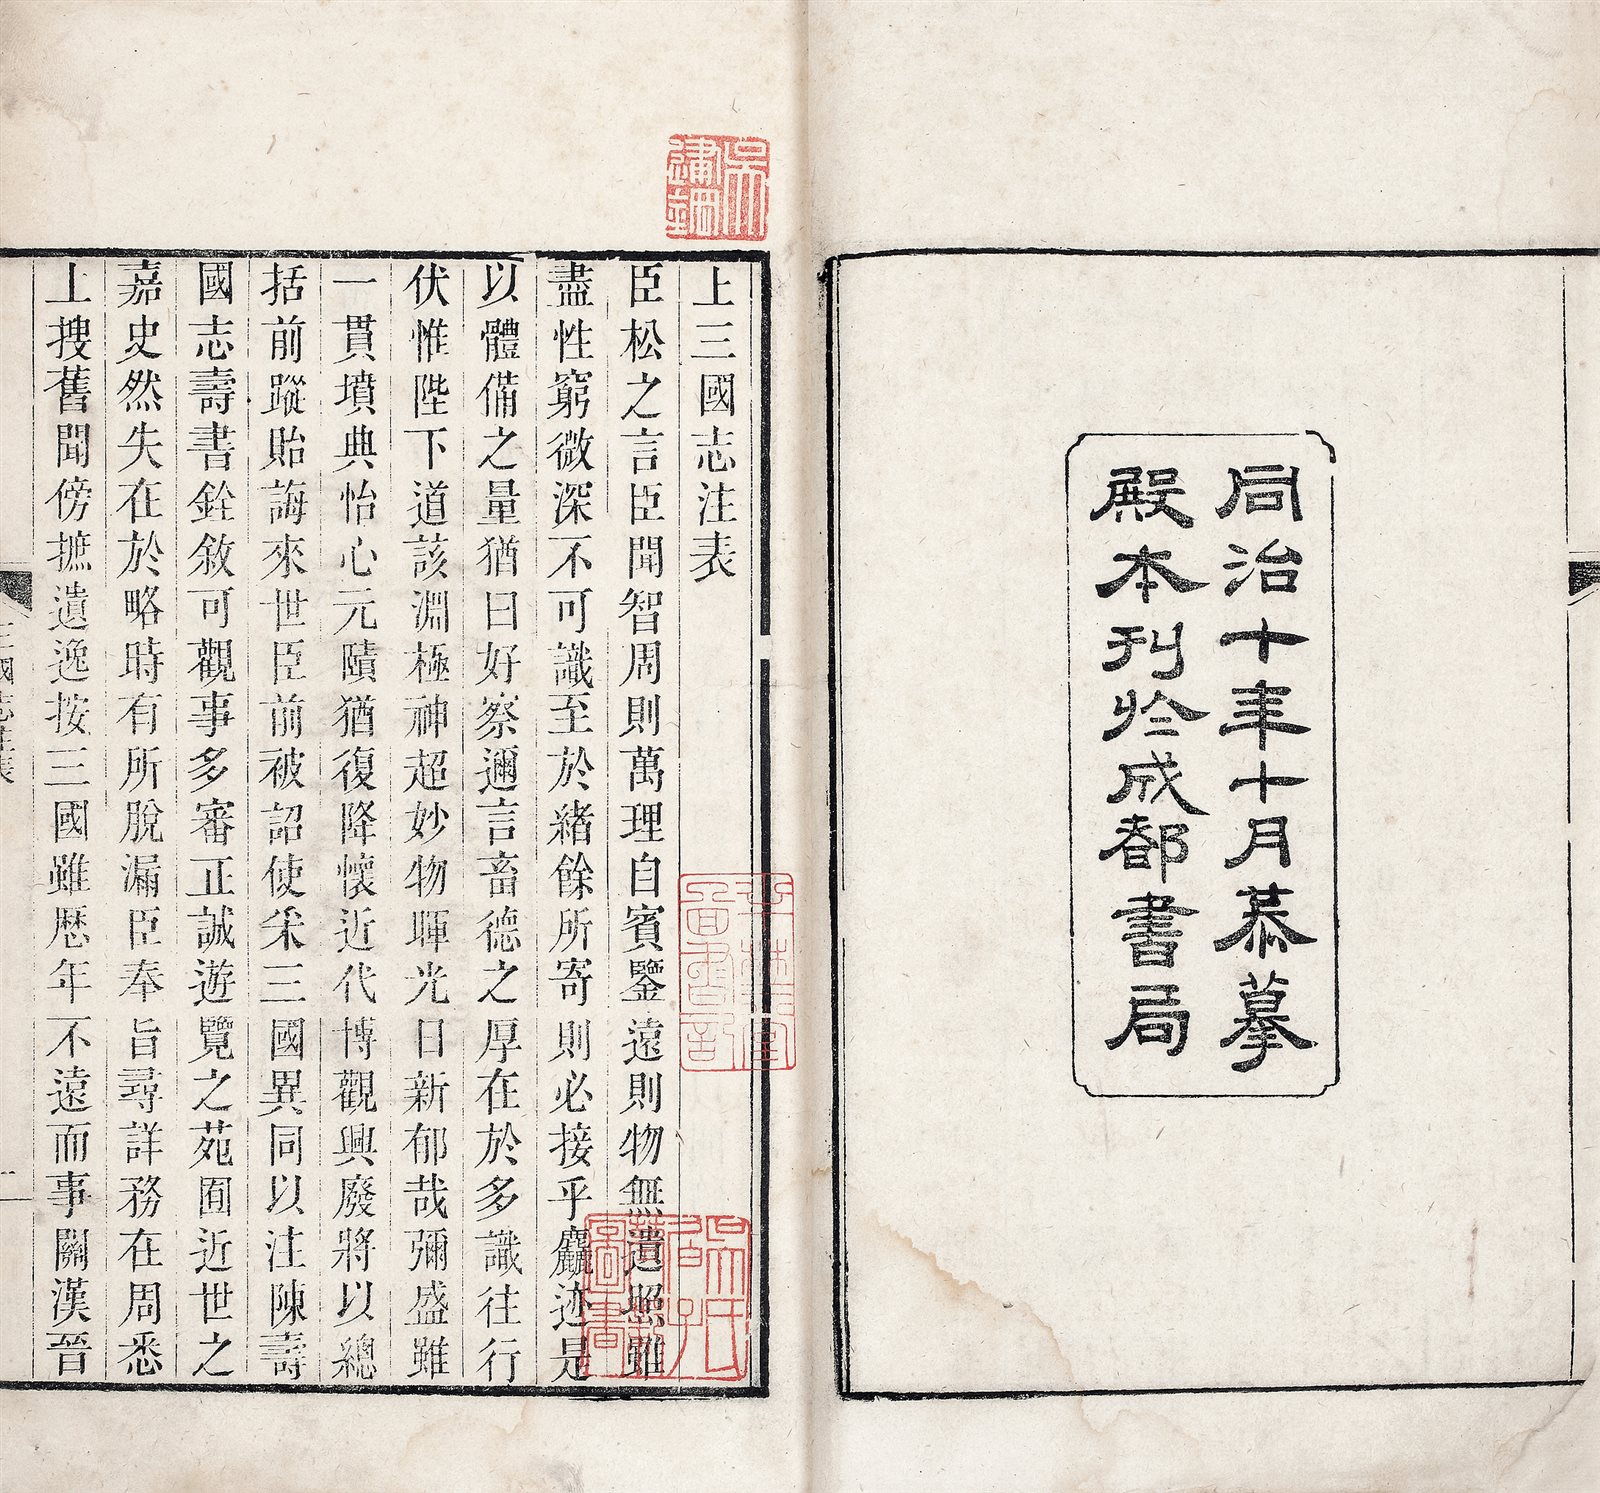 同治十年十月恭摹
殿本刊於成都書局
上三國志注表
臣松之言臣聞智周則萬理自賓鑒遠則物無遺照雖
盡性窮微深不可識至於緒餘所寄則必接乎麤迹是
以體備之量猶曰好察邇言畜德之厚在於多識往行
伏惟陛下道該淵極神超妙物暉光日新郁哉彌盛雖
一貫墳典怡心元賾猶復降懷近代博觀興廢將以總
括前蹤貽誨來世臣前被詔使采三國異同以注陳壽
國志壽書銓敘可觀事多審正誠遊覽之苑囿近世之
嘉史然失在於略時有所脫漏臣奉旨尋詳務在周悉
上搜舊聞傍摭遺逸按三國雖歷年不遠而事關漢晉
三國志注表
一